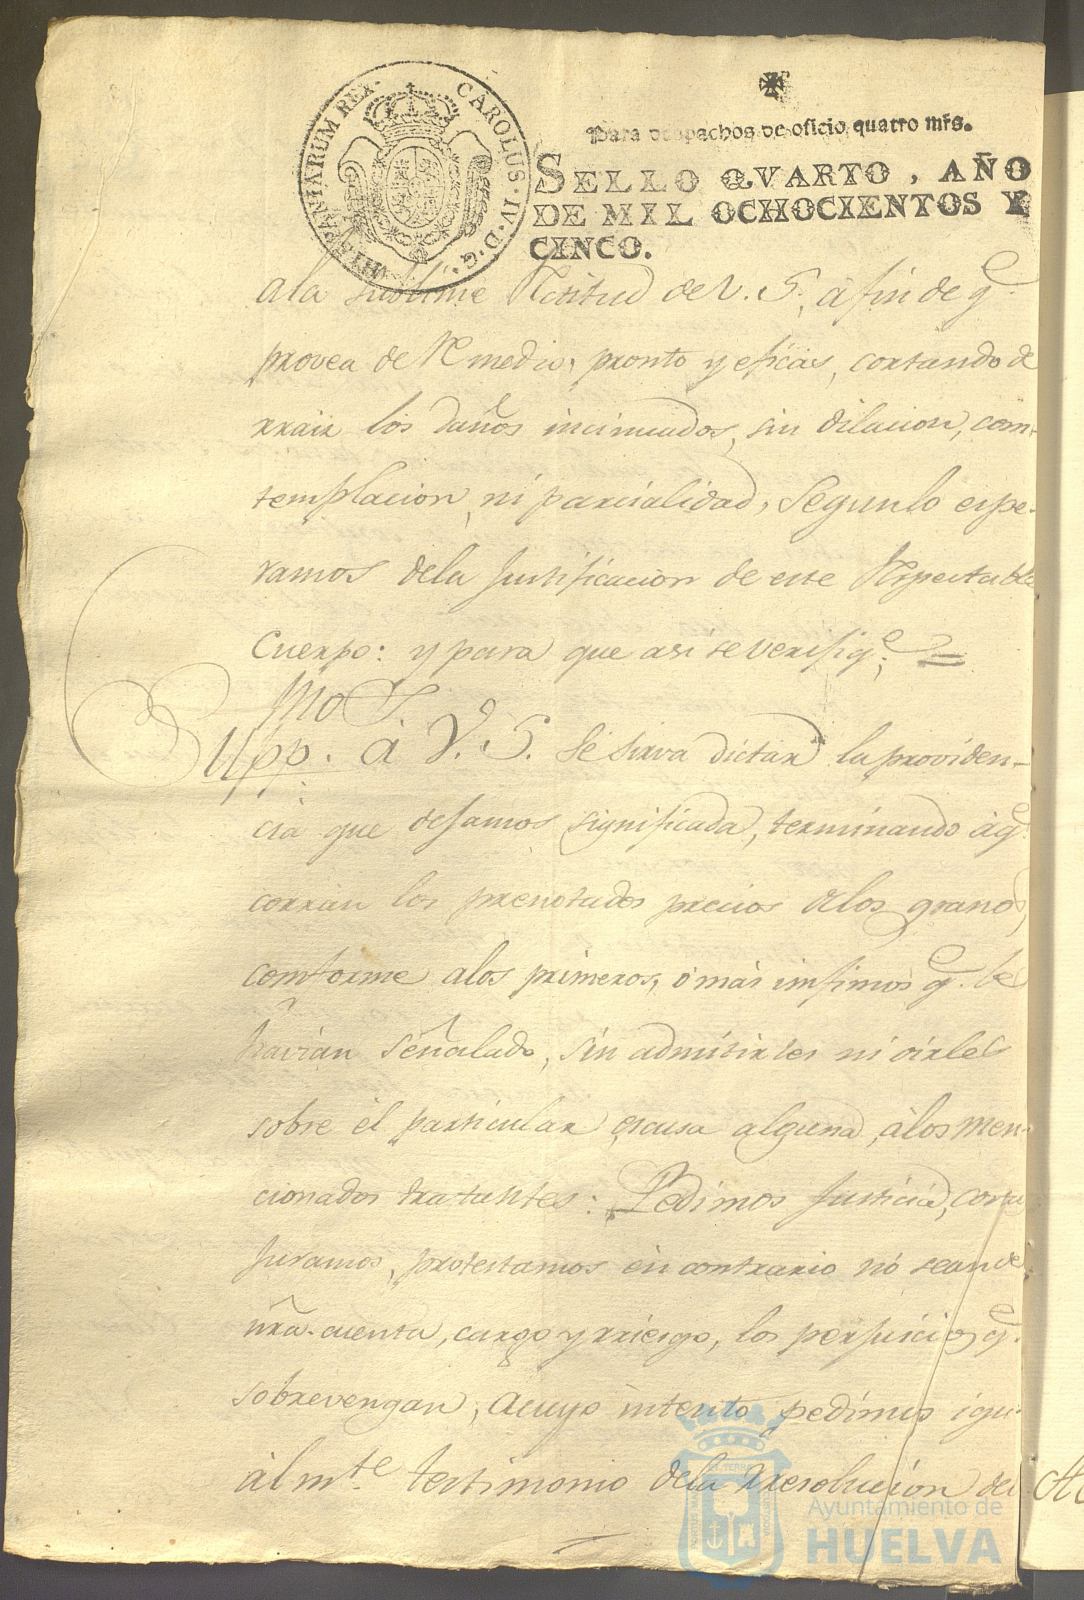 HISPANIARUM REX. CAROLUS. IV. D. G.
Para despachos de oficio quatro mrs.
SELLO QVARTO, AÑO
DE MIL OCHOCIENTOS Y
CINCO.
ala sublime Rectitud de V. S., à fin de q.e
provea de Remedio, pronto y eficas, cortando de
rraiz los daños incinuados, sin dilacion, com-
templacion, ni parcialidad, segun lo espe-
ramos dela Justificacion de este Respectable
Cuerpo: y para que asi se verifiq.e;
Supp.mos à V.S. Se sirva dictar la providen-
cia que desamos significada, terminando à q.e
corran los prenotados precios delos granos,
comforme alos primeros, ò mas imfimos q.e se
havian señalado, sin admitirles ni oirles
sobre èl particular escusa alguna, àlos men-
cionados tratantes: Pedimos Justicia,
Juramos, protestamos en contrario no sean de
ñra cuenta, cargo y rriesgo, los perjuicios q.e
sobrevengan, acuyo intento pedimos igu-
àlm.te testimonio dela rresolucion del
Ayuntamiento de
HUELVA